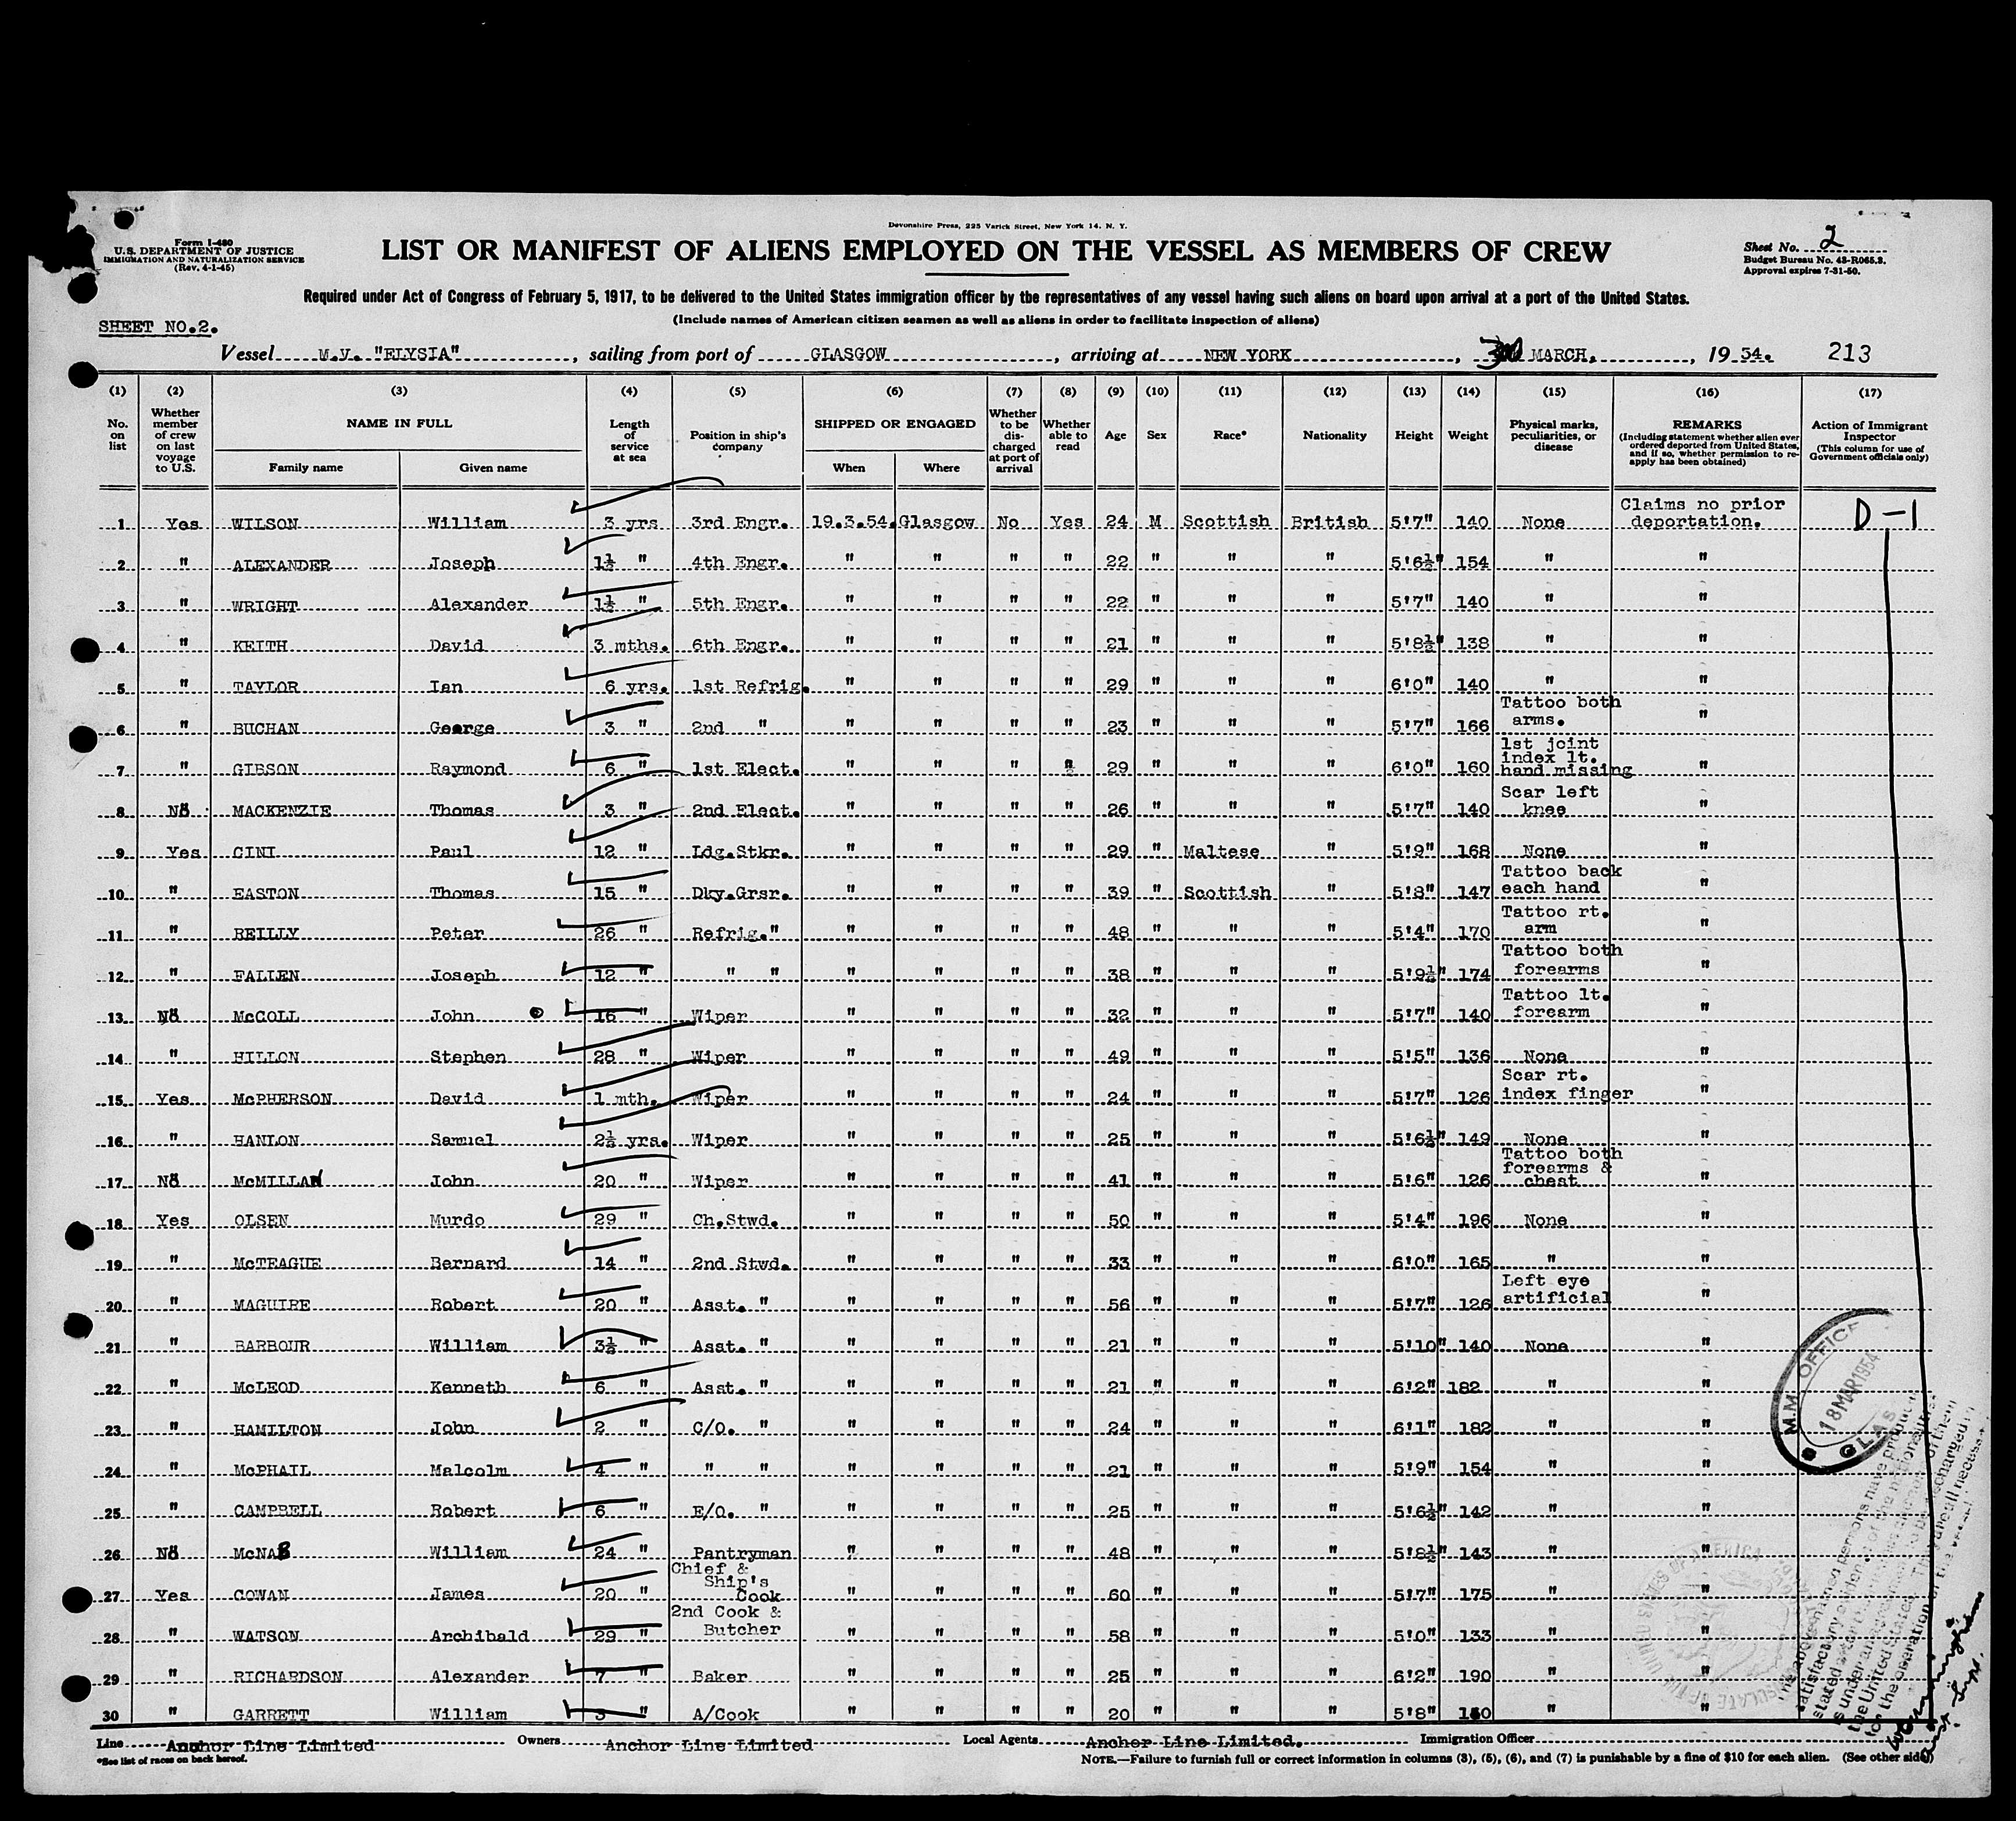 Devonshire Press, 225 Varick Street, New York 14, N. Y.
Form I-480
U.S. DEPARTMENT OF JUSTICE
IMMIGRATION AND NATURALIZATION SERVICE
(Rev. 4-1-45)
LIST OR MANIFEST OF ALIENS EMPLOYED ON THE VESSEL AS MEMBERS OF CREW
Sheet No. 2
Budget Bureau No. 43-R065.3.
Approval expires 7-31-50.
Required under Act of Congress of February 5, 1917, to be delivered to the United States immigration officer by the representatives of any vessel having such aliens on board upon arrival at a port of the United States.
(Include names of American citizen seamen as well as aliens in order to facilitate inspection of aliens)
SHEET NO.2.
Vessel M.V. "ELYSIA", sailing from port of GLASGOW, arriving at NEW YORK, MARCH, 19 54. 213
(1) (2) (3) (4) (5) (6) (7) (8) (9) (10) (11) (12) (13) (14) (15) (16) (17)
No. on list Whether member of crew on last voyage to U.S. NAME IN FULL Family name Given name Length of service at sea Position in ship's company SHIPPED OR ENGAGED When Where Whether to be discharged at port of arrival Whether able to read Age Sex Race* Nationality Height Weight Physical marks, peculiarities, or disease REMARKS (Including statement whether alien ever ordered deported from United States, and if so, whether permission to re-apply has been obtained) Action of Immigrant Inspector (This column for use of Government officials only)
1 Yes WILSON William 3 yrs 3rd Engr. 19.3.54. Glasgow No Yes 24 M Scottish British 5'7" 140 None Claims no prior deportation. D-1
2 " ALEXANDER Joseph 1½ " 4th Engr. " " " " 22 " " " 5'6½" 154 " "
3 " WRIGHT Alexander 1½ " 5th Engr. " " " " 22 " " " 5'7" 140 " "
4 " KEITH David 3 mths. 6th Engr. " " " " 21 " " " 5'8½" 138 " "
5 " TAYLOR Ian 6 yrs. 1st Refrig. " " " " 29 " " " 6'0" 140 " "
6 " BUCHAN George 3 " 2nd " " " " " 23 " " " 5'7" 166 Tattoo both arms. "
7 " GIBSON Raymond 6 " 1st Elect. " " " " 29 " " " 6'0" 160 1st joint index lt. hand missing "
8 No MACKENZIE Thomas 3 " 2nd Elect. " " " " 26 " " " 5'7" 140 Scar left knee "
9 Yes CINI Paul 12 " Ldg.Stkr. " " " " 29 " Maltese " 5'9" 168 None "
10 " EASTON Thomas 15 " Dky.Grsr. " " " " 39 " Scottish " 5'8" 147 Tattoo back each hand "
11 " REILLY Peter 26 " Refrig." " " " " 48 " " " 5'4" 170 Tattoo rt. arm "
12 " FALLEN Joseph 12 " " " " " " " 38 " " " 5'9½" 174 Tattoo both forearms "
13 No McCOLL John 16 " Wiper " " " " 32 " " " 5'7" 140 Tattoo lt. forearm "
14 " HILLON Stephen 28 " Wiper " " " " 49 " " " 5'5" 136 None "
15 Yes McPHERSON David 1 mth. Wiper " " " " 24 " " " 5'7" 126 Scar rt. index finger "
16 " HANLON Samuel 2½ yrs. Wiper " " " " 25 " " " 5'6½" 149 None "
17 No McMILLAN John 20 " Wiper " " " " 41 " " " 5'6" 126 Tattoo both forearms & chest "
18 Yes OLSEN Murdo 29 " Ch.Stwd. " " " " 50 " " " 5'4" 196 None "
19 " McTEAGUE Bernard 14 " 2nd Stwd. " " " " 33 " " " 6'0" 165 " "
20 " MAGUIRE Robert 20 " Asst. " " " " " 56 " " " 5'7" 126 Left eye artificial "
21 " BARBOUR William 3½ " Asst. " " " " " 21 " " " 5'10" 140 None "
22 " McLEOD Kenneth 6 " Asst. " " " " " 21 " " " 6'2" 182 " "
23 " HAMILTON John 2 " C/O. " " " " " 24 " " " 6'1" 182 " "
24 " McPHAIL Malcolm 4 " " " " " " " 21 " " " 5'9" 154 " "
25 " CAMPBELL Robert 6 " E/O. " " " " " 25 " " " 5'6½" 142 " "
26 No McNAB William 24 " Pantryman " " " " 48 " " " 5'8½" 143 " "
27 Yes COWAN James 20 " Chief & Ship's Cook " " " " 60 " " " 5'7" 175 " "
28 " WATSON Archibald 29 " 2nd Cook & Butcher " " " " 58 " " " 5'0" 133 " "
29 " RICHARDSON Alexander 7 " Baker " " " " 25 " " " 6'2" 190 " "
30 " GARRETT William 3 " A/Cook " " " " 20 " " " 5'8" " "
M.M. OFFICE
18 MAR 1954
GLAS
Line Anchor Line Limited Owners Anchor Line Limited Local Agents Anchor Line Limited. Immigration Officer
*See list of races on back hereof.
NOTE.—Failure to furnish full or correct information in columns (3), (5), (6), and (7) is punishable by a fine of $10 for each alien. (See other side)